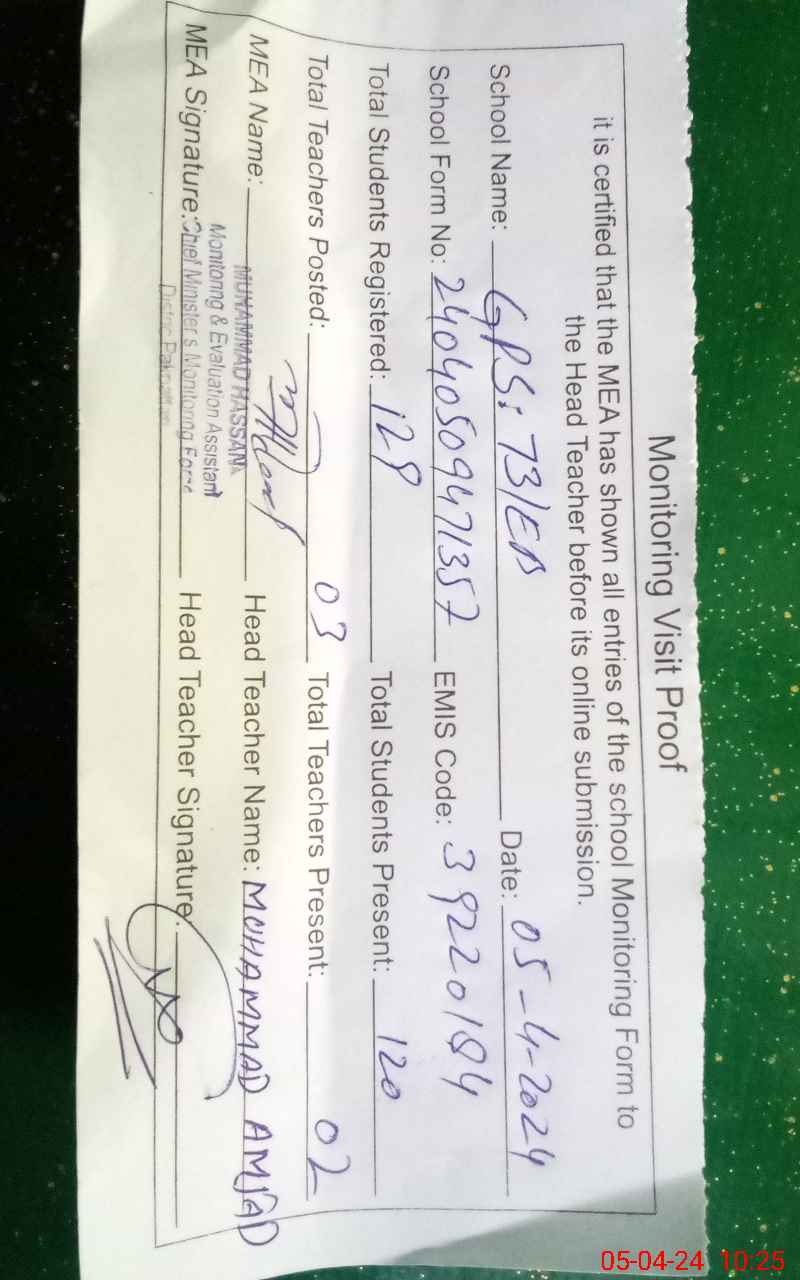 Monitoring Visit Proof
it is certified that the MEA has shown all entries of the school Monitoring Form to
the Head Teacher before its online submission.
School Name: GPS: 73/EB Date: 05-4-2024
School Form No: 24040509471357 EMIS Code: 39220184
Total Students Registered: 129 Total Students Present: 120
Total Teachers Posted: 03 Total Teachers Present: 02
MEA Name: MUHAMMAD HASSAN Head Teacher Name: MUHAMMAD AMJAD
Monitoring & Evaluation Assistant
MEA Signature: Chief Minister's Monitoring Force Head Teacher Signature:
District Pakpattan
05-04-24 10:25